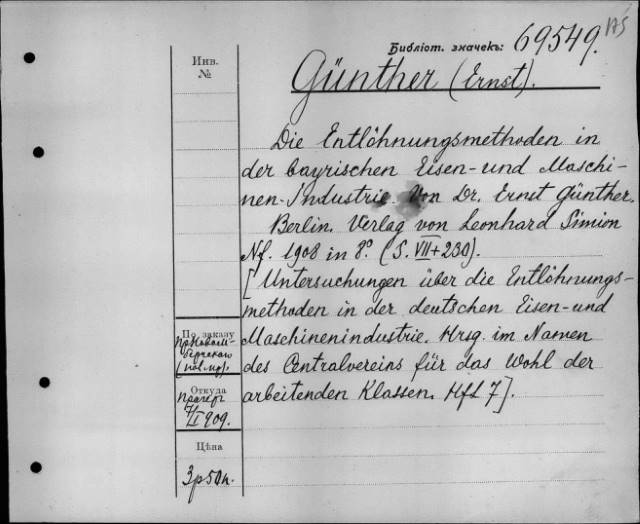 175
Библіот. значекъ: 69549.
Инв.
№
Günther (Ernst).
Die Entlöhnungsmethoden in
der bayrischen Eisen- und Maschi-
nen-Industrie. Von Dr. Ernst Günther.
Berlin. Verlag von Leonhard Simion
Nf. 1908 in 8º. (S. VII+230).
[Untersuchungen über die Entlöhnungs-
methoden in der deutschen Eisen- und
Maschinenindustrie. Hrsg. im Namen
des Centralvereins für das Wohl der
arbeitenden Klassen. Hft 7].
По заказу
Откуда
I 909.
Цѣна
3р50к.